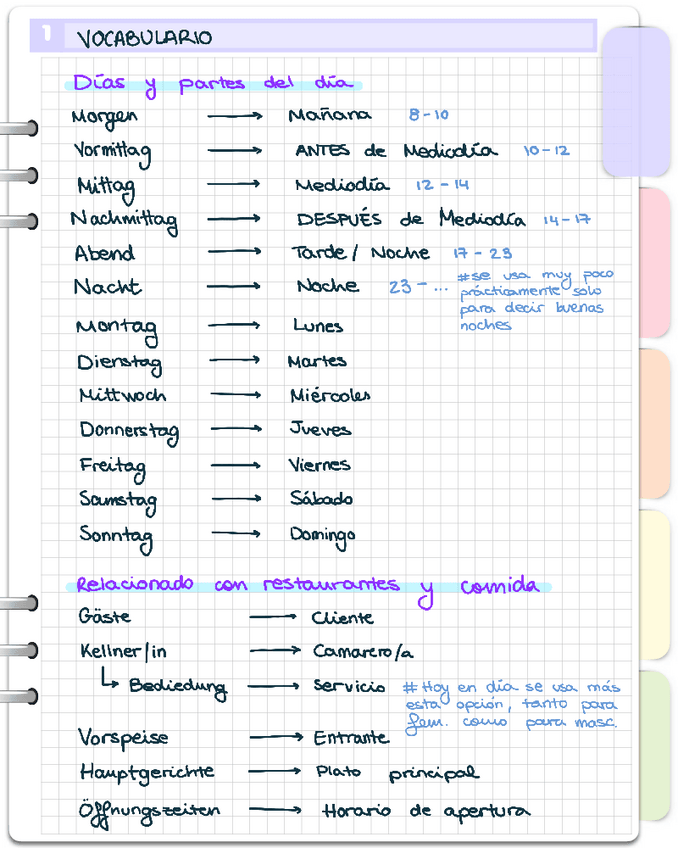 1 VOCABULARIO
Días y partes del día
Morgen → Mañana 8-10
Vormittag → ANTES de Mediodía 10-12
Mittag → Mediodía 12-14
Nachmittag → DESPUÉS de Mediodía 14-17
Abend → Tarde / Noche 17-23
Nacht → Noche 23-... #se usa muy poco
prácticamente solo
para decir buenas
noches
Montag → Lunes
Dienstag → Martes
Mittwoch → Miércoles
Donnerstag → Jueves
Freitag → Viernes
Samstag → Sábado
Sonntag → Domingo
Relacionado con restaurantes y comida
Gäste → Cliente
Kellner/in → Camarero/a
↳ Bediedung → Servicio #Hoy en día se usa más
esta opción, tanto para
fem. como para masc.
Vorspeise → Entrante
Hauptgerichte → Plato principal
Öffnungszeiten → Horario de apertura